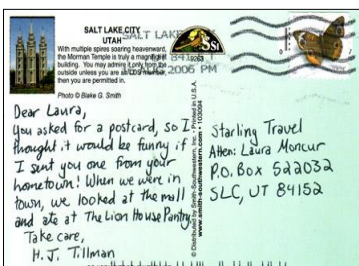 SALT LAKE CITY,
UTAH
With multiple spires soaring heavenward,
the Morman Temple is truly a magnificent
building. You may admire it only from the
outside unless you are an LDS member,
then you are permitted in.
Photo © Blake G. Smith
SALT LAKE
2006 PM
Dear Laura,
You asked for a postcard, so I
thought it would be funny if
I sent you one from your
hometown! When we were in
town, we looked at the mall
and ate at The Lion House Pantry.
Take care,
H. J. Tillman
© Distributed by Smith-Southwestern, Inc. • Printed in U.S.A.
www.smith-southwestern.com • 103094
Starling Travel
Atten: Laura Moncur
P.O. Box 522032
SLC, UT 84152